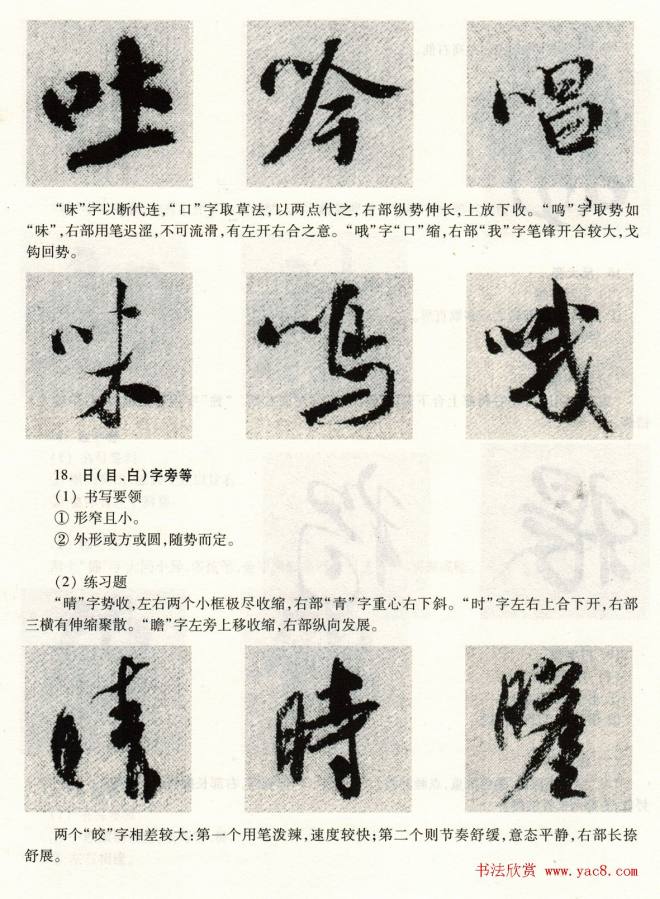 吐 吟 唱
“味”字以断代连，“口”字取草法，以两点代之，右部纵势伸长，上放下收。“鸣”字取势如
“味”，右部用笔迟涩，不可流滑，有左开右合之意。“哦”字“口”缩，右部“我”字笔锋开合较大，戈
钩回势。
味 鳴 哦
18. 日（目、白）字旁等
（1）书写要领
① 形窄且小。
② 外形或方或圆，随势而定。
（2）练习题
“晴”字势收，左右两个小框极尽收缩，右部“青”字重心右下斜。“时”字左右上合下开，右部
三横有伸缩聚散。“瞻”字左旁上移收缩，右部纵向发展。
晴 時
两个“皎”字相差较大：第一个用笔泼辣，速度较快；第二个则节奏舒缓，意态平静，右部长捺
舒展。
书法欣赏 www.yac8.com